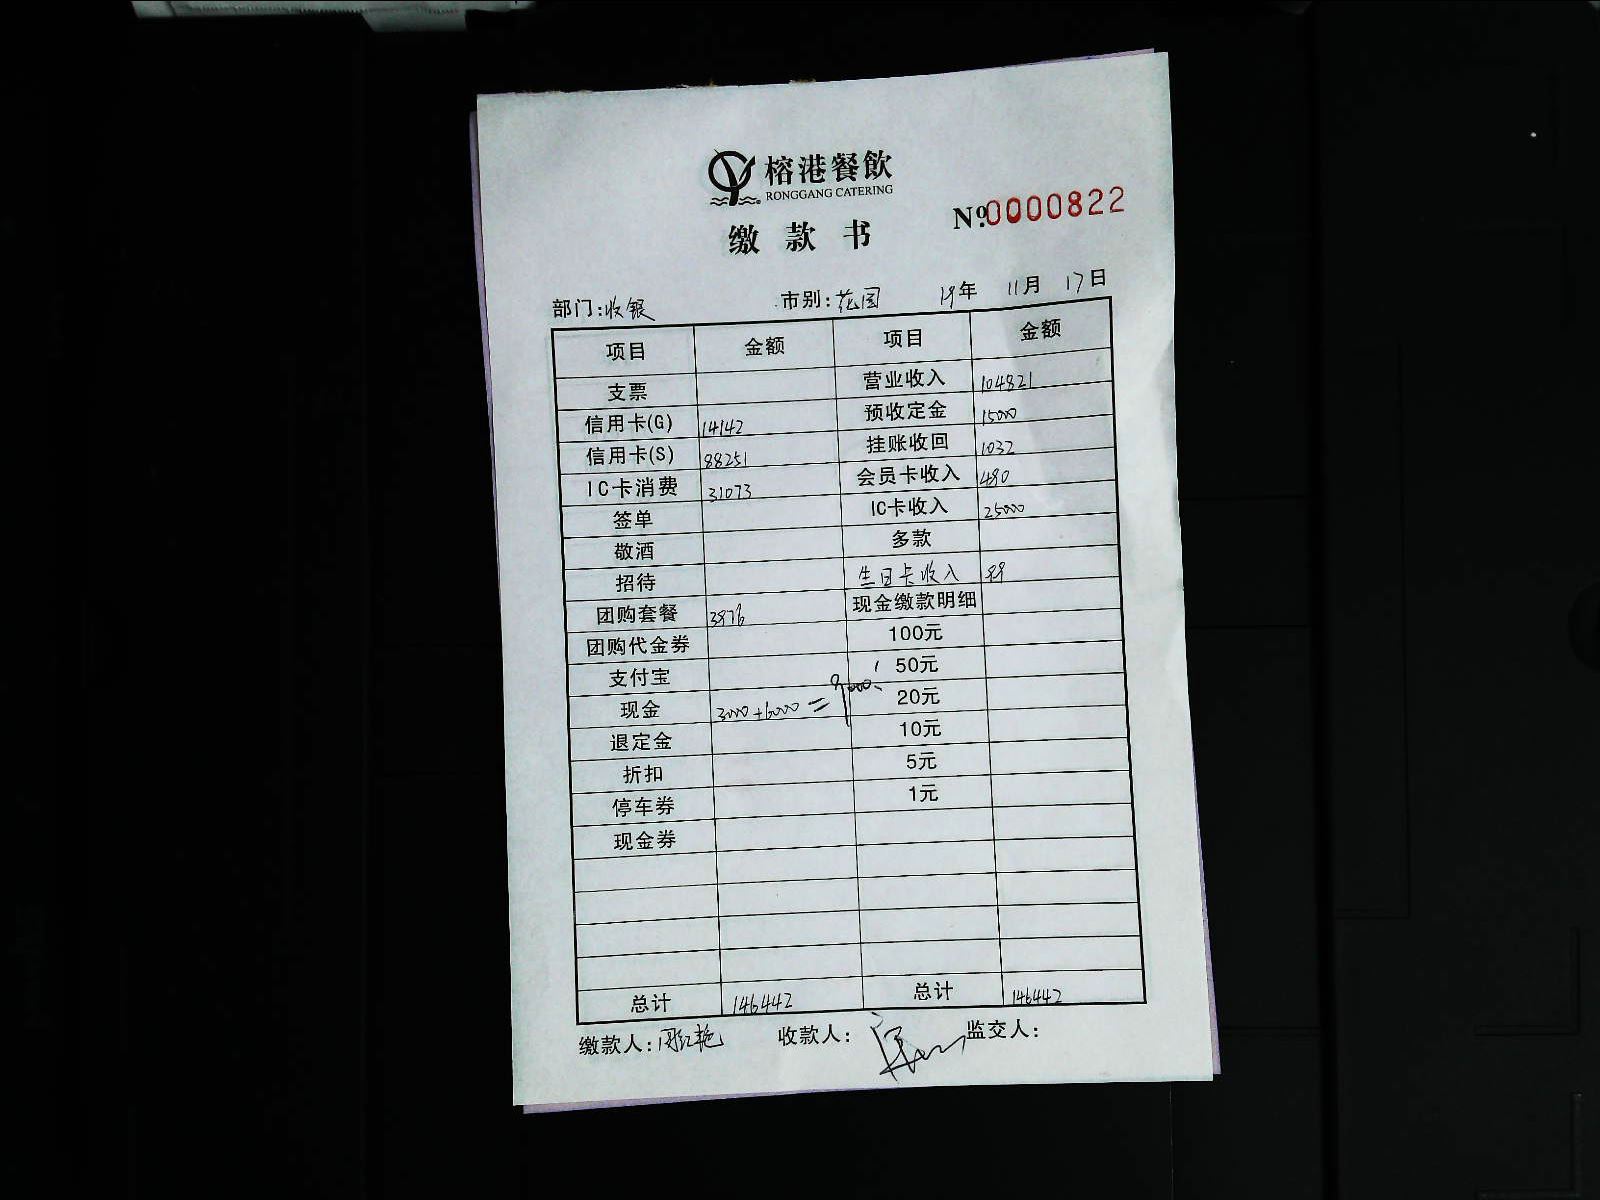 榕港餐飲
RONGGANG CATERING
缴款书
№0000822
部门:收银 市别:花园 19年 11月 17日
项目 金额 项目 金额
支票 营业收入 104821
信用卡(G) 14142 预收定金 15000
信用卡(S) 88251 挂账收回 1032
IC卡消费 31073 会员卡收入 490
签单 IC卡收入 25000
敬酒 多款
招待 生日卡收入 99
团购套餐 3976 现金缴款明细
团购代金券 100元
支付宝 50元
现金 3000+6000=9000 20元
退定金 10元
折扣 5元
停车券 1元
现金券
总计 146442 总计 146442
缴款人:周红艳 收款人: 监交人: